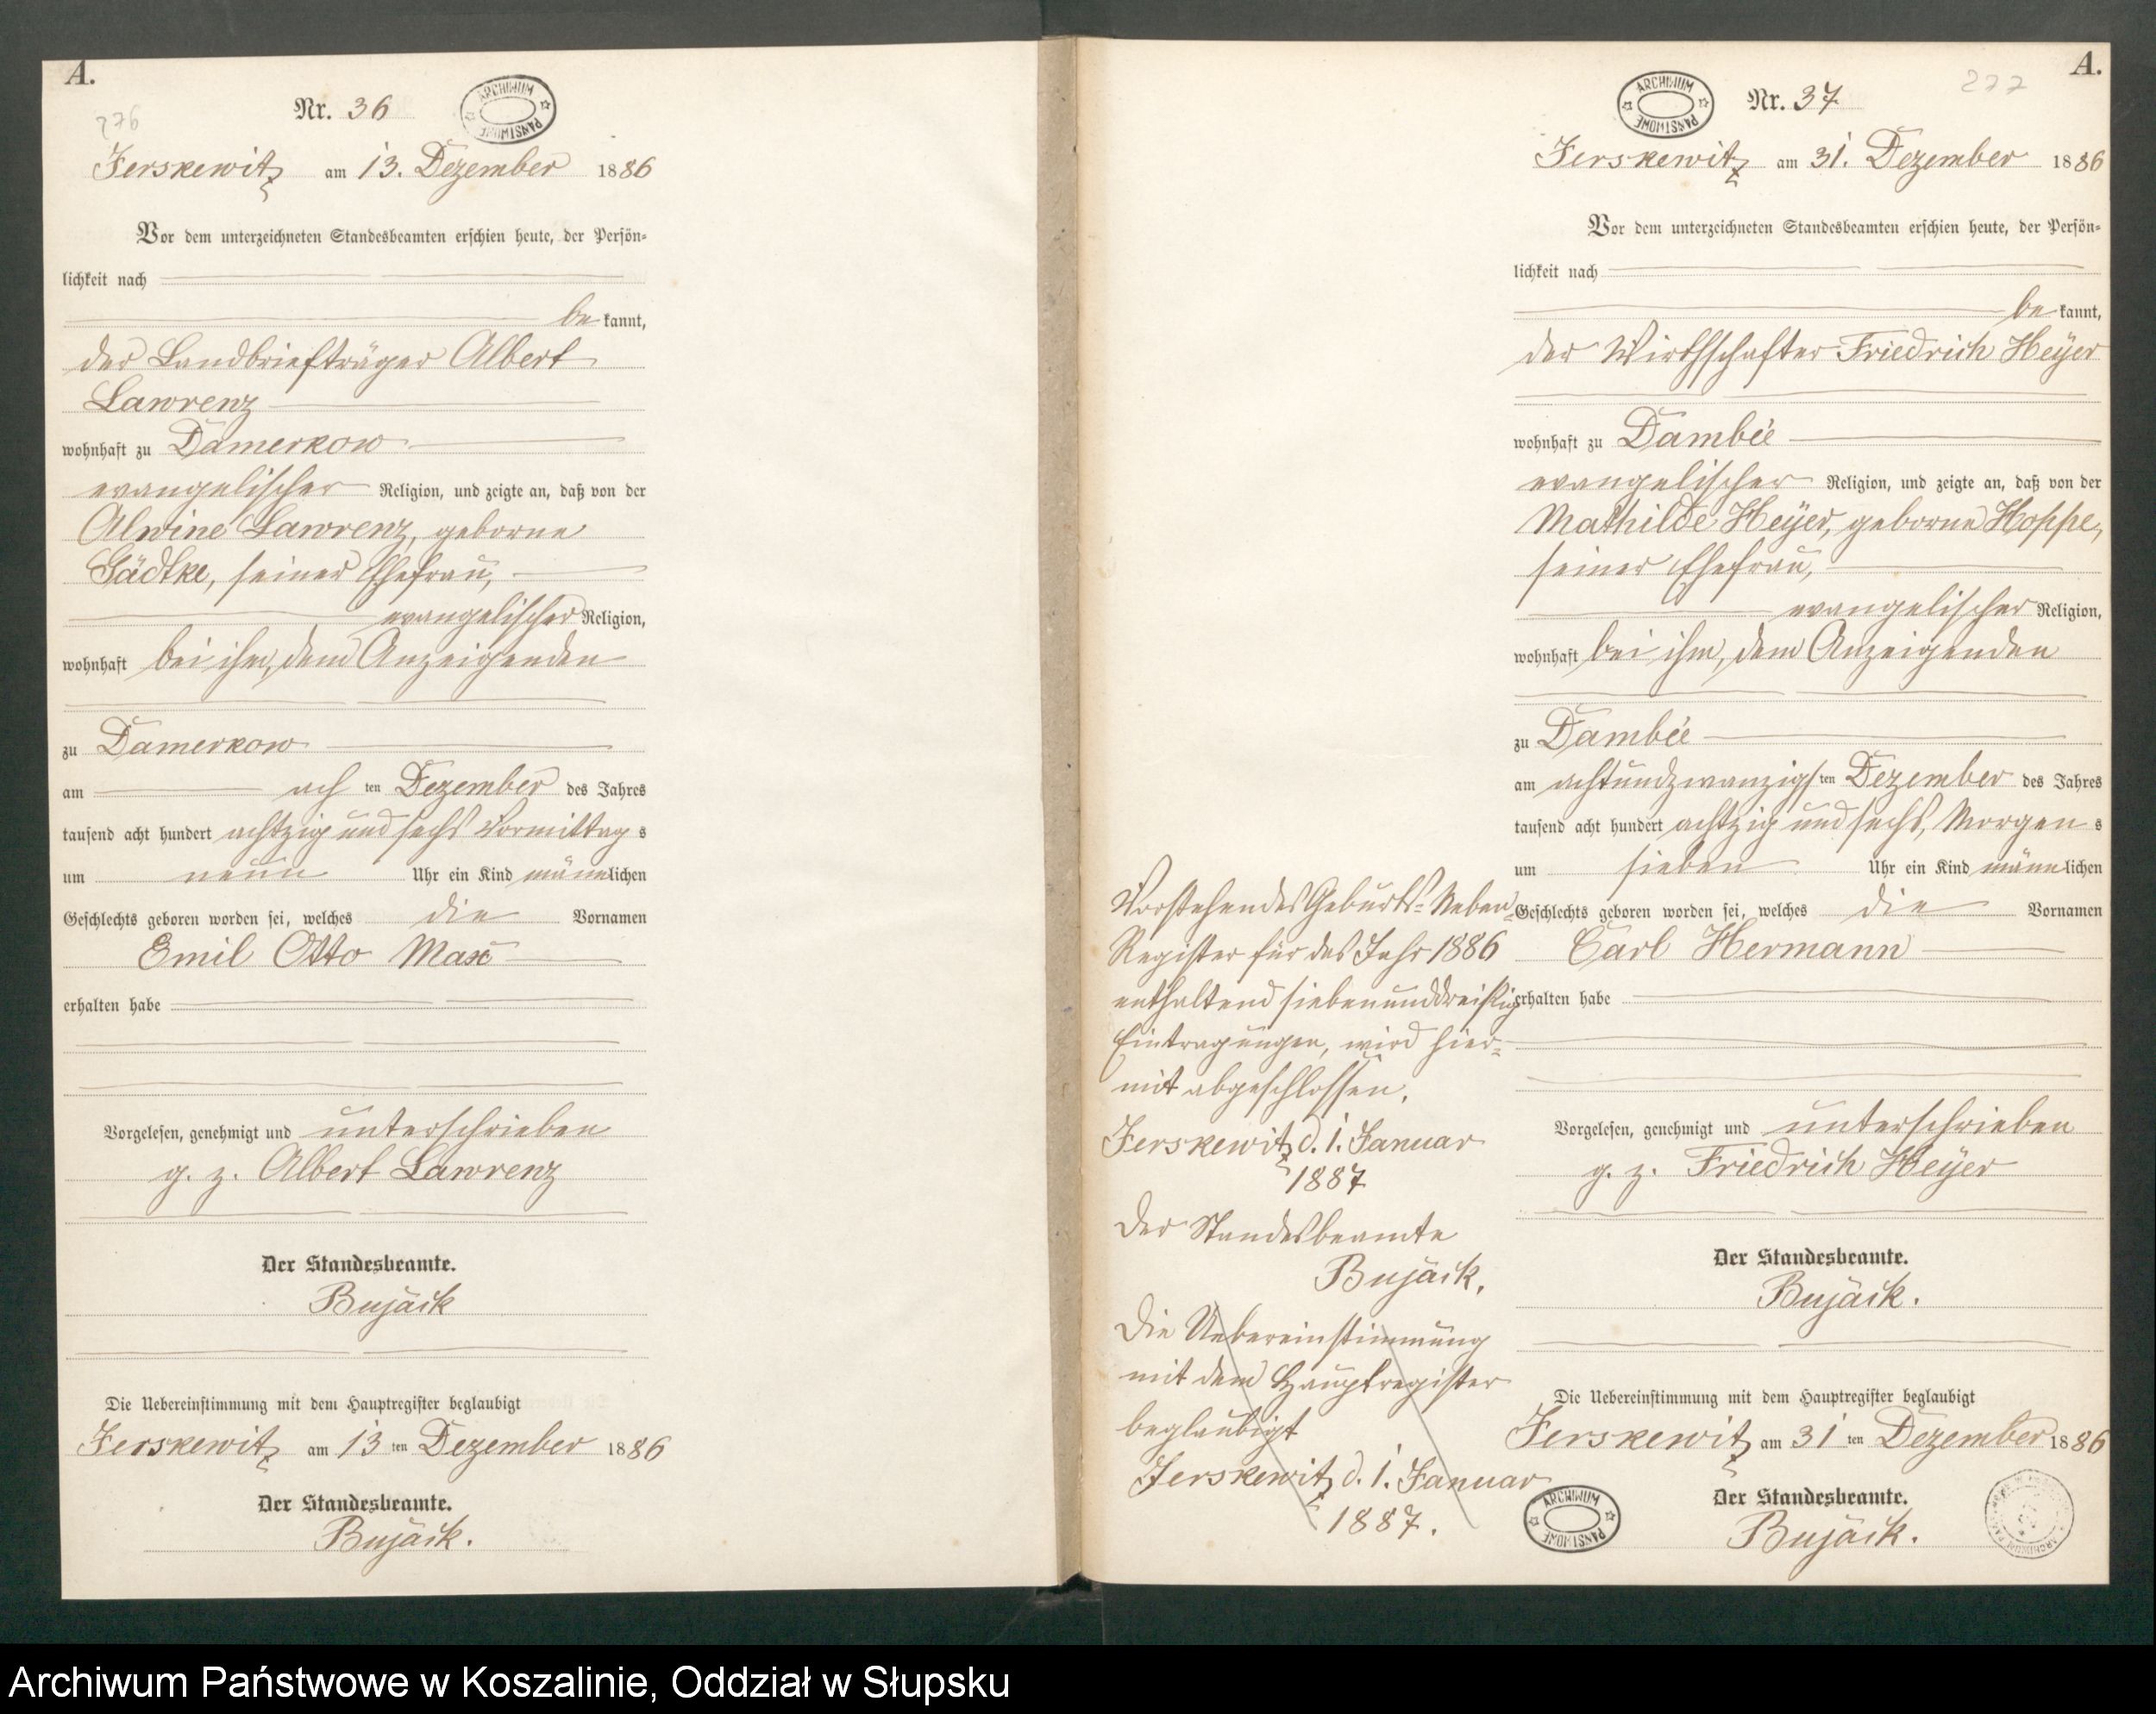 A.
276
Nr. 36
ARCHIWUM PAŃSTWOWE
Jerskewitz am 13. Dezember 1886
Vor dem unterzeichneten Standesbeamten erschien heute, der Persön-
lichkeit nach
be kannt,
der Landbriefträger Albert
Lawrenz
wohnhaft zu Damerkow
evangelischer Religion, und zeigte an, daß von der
Alwine Lawrenz, geborne
Gädtke, seiner Ehefrau,
evangelischer Religion,
wohnhaft bei ihm, dem Anzeigenden
zu Damerkow
am ach ten Dezember des Jahres
tausend acht hundert achtzig und sechs Vormittag s
um neun Uhr ein Kind männlichen
Geschlechts geboren worden sei, welches die Vornamen
Emil Otto Max
erhalten habe
Vorgelesen, genehmigt und unterschrieben
g. z. Albert Lawrenz
Der Standesbeamte.
Bujack
Die Uebereinstimmung mit dem Hauptregister beglaubigt
Jerskewitz am 13 ten Dezember 1886
Der Standesbeamte.
Bujack.
A.
277
ARCHIWUM PAŃSTWOWE
Nr. 37
Jerskewitz am 31. Dezember 1886
Vor dem unterzeichneten Standesbeamten erschien heute, der Persön-
lichkeit nach
be kannt,
der Wirthschafter Friedrich Heyer
wohnhaft zu Dambee
evangelischer Religion, und zeigte an, daß von der
Mathilde Heyer, geborne Hoppe,
seiner Ehefrau,
evangelischer Religion,
wohnhaft bei ihm, dem Anzeigenden
zu Dambee
am achtundzwanzigs ten Dezember des Jahres
tausend acht hundert achtzig und sechs, Morgen s
um sieben Uhr ein Kind männlichen
Geschlechts geboren worden sei, welches die Vornamen
Carl Hermann
erhalten habe
Vorgelesen, genehmigt und unterschrieben
g. z. Friedrich Heyer
Der Standesbeamte.
Bujack.
Die Uebereinstimmung mit dem Hauptregister beglaubigt
Jerskewitz am 31 ten Dezember 1886
Der Standesbeamte.
Bujack.
Vorstehendes Geburts-Neben-
Register für das Jahr 1886
enthaltend siebenunddreißig
Eintragungen, wird hier-
mit abgeschlossen.
Jerskewitz d. 1. Januar
1887
Der Standesbeamte
Bujack.
Die Uebereinstimmung
mit dem Hauptregister
beglaubigt
Jerskewitz d. 1. Januar
1887.
ARCHIWUM PAŃSTWOWE
Archiwum Państwowe w Koszalinie, Oddział w Słupsku